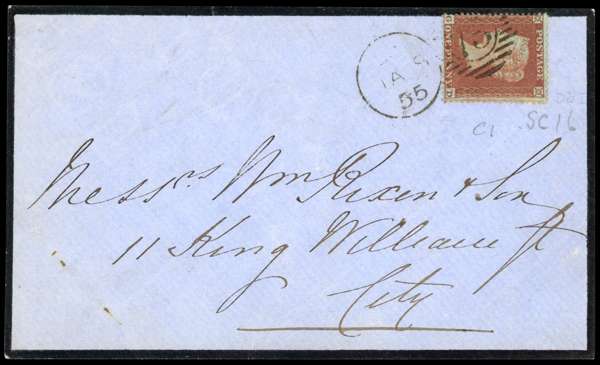 POSTAGE
ONE PENNY
55
C1 SC16
Messrs Wm Rixen & Son
11 King William St
City